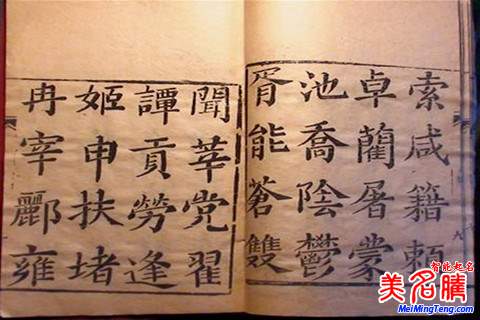 索咸籍賴
卓藺屠蒙
池喬陰鬱
胥能蒼雙
聞莘党翟
譚貢勞逢
姬申扶堵
冉宰酈雍
智能起名
美名騰
MeiMingTeng.com